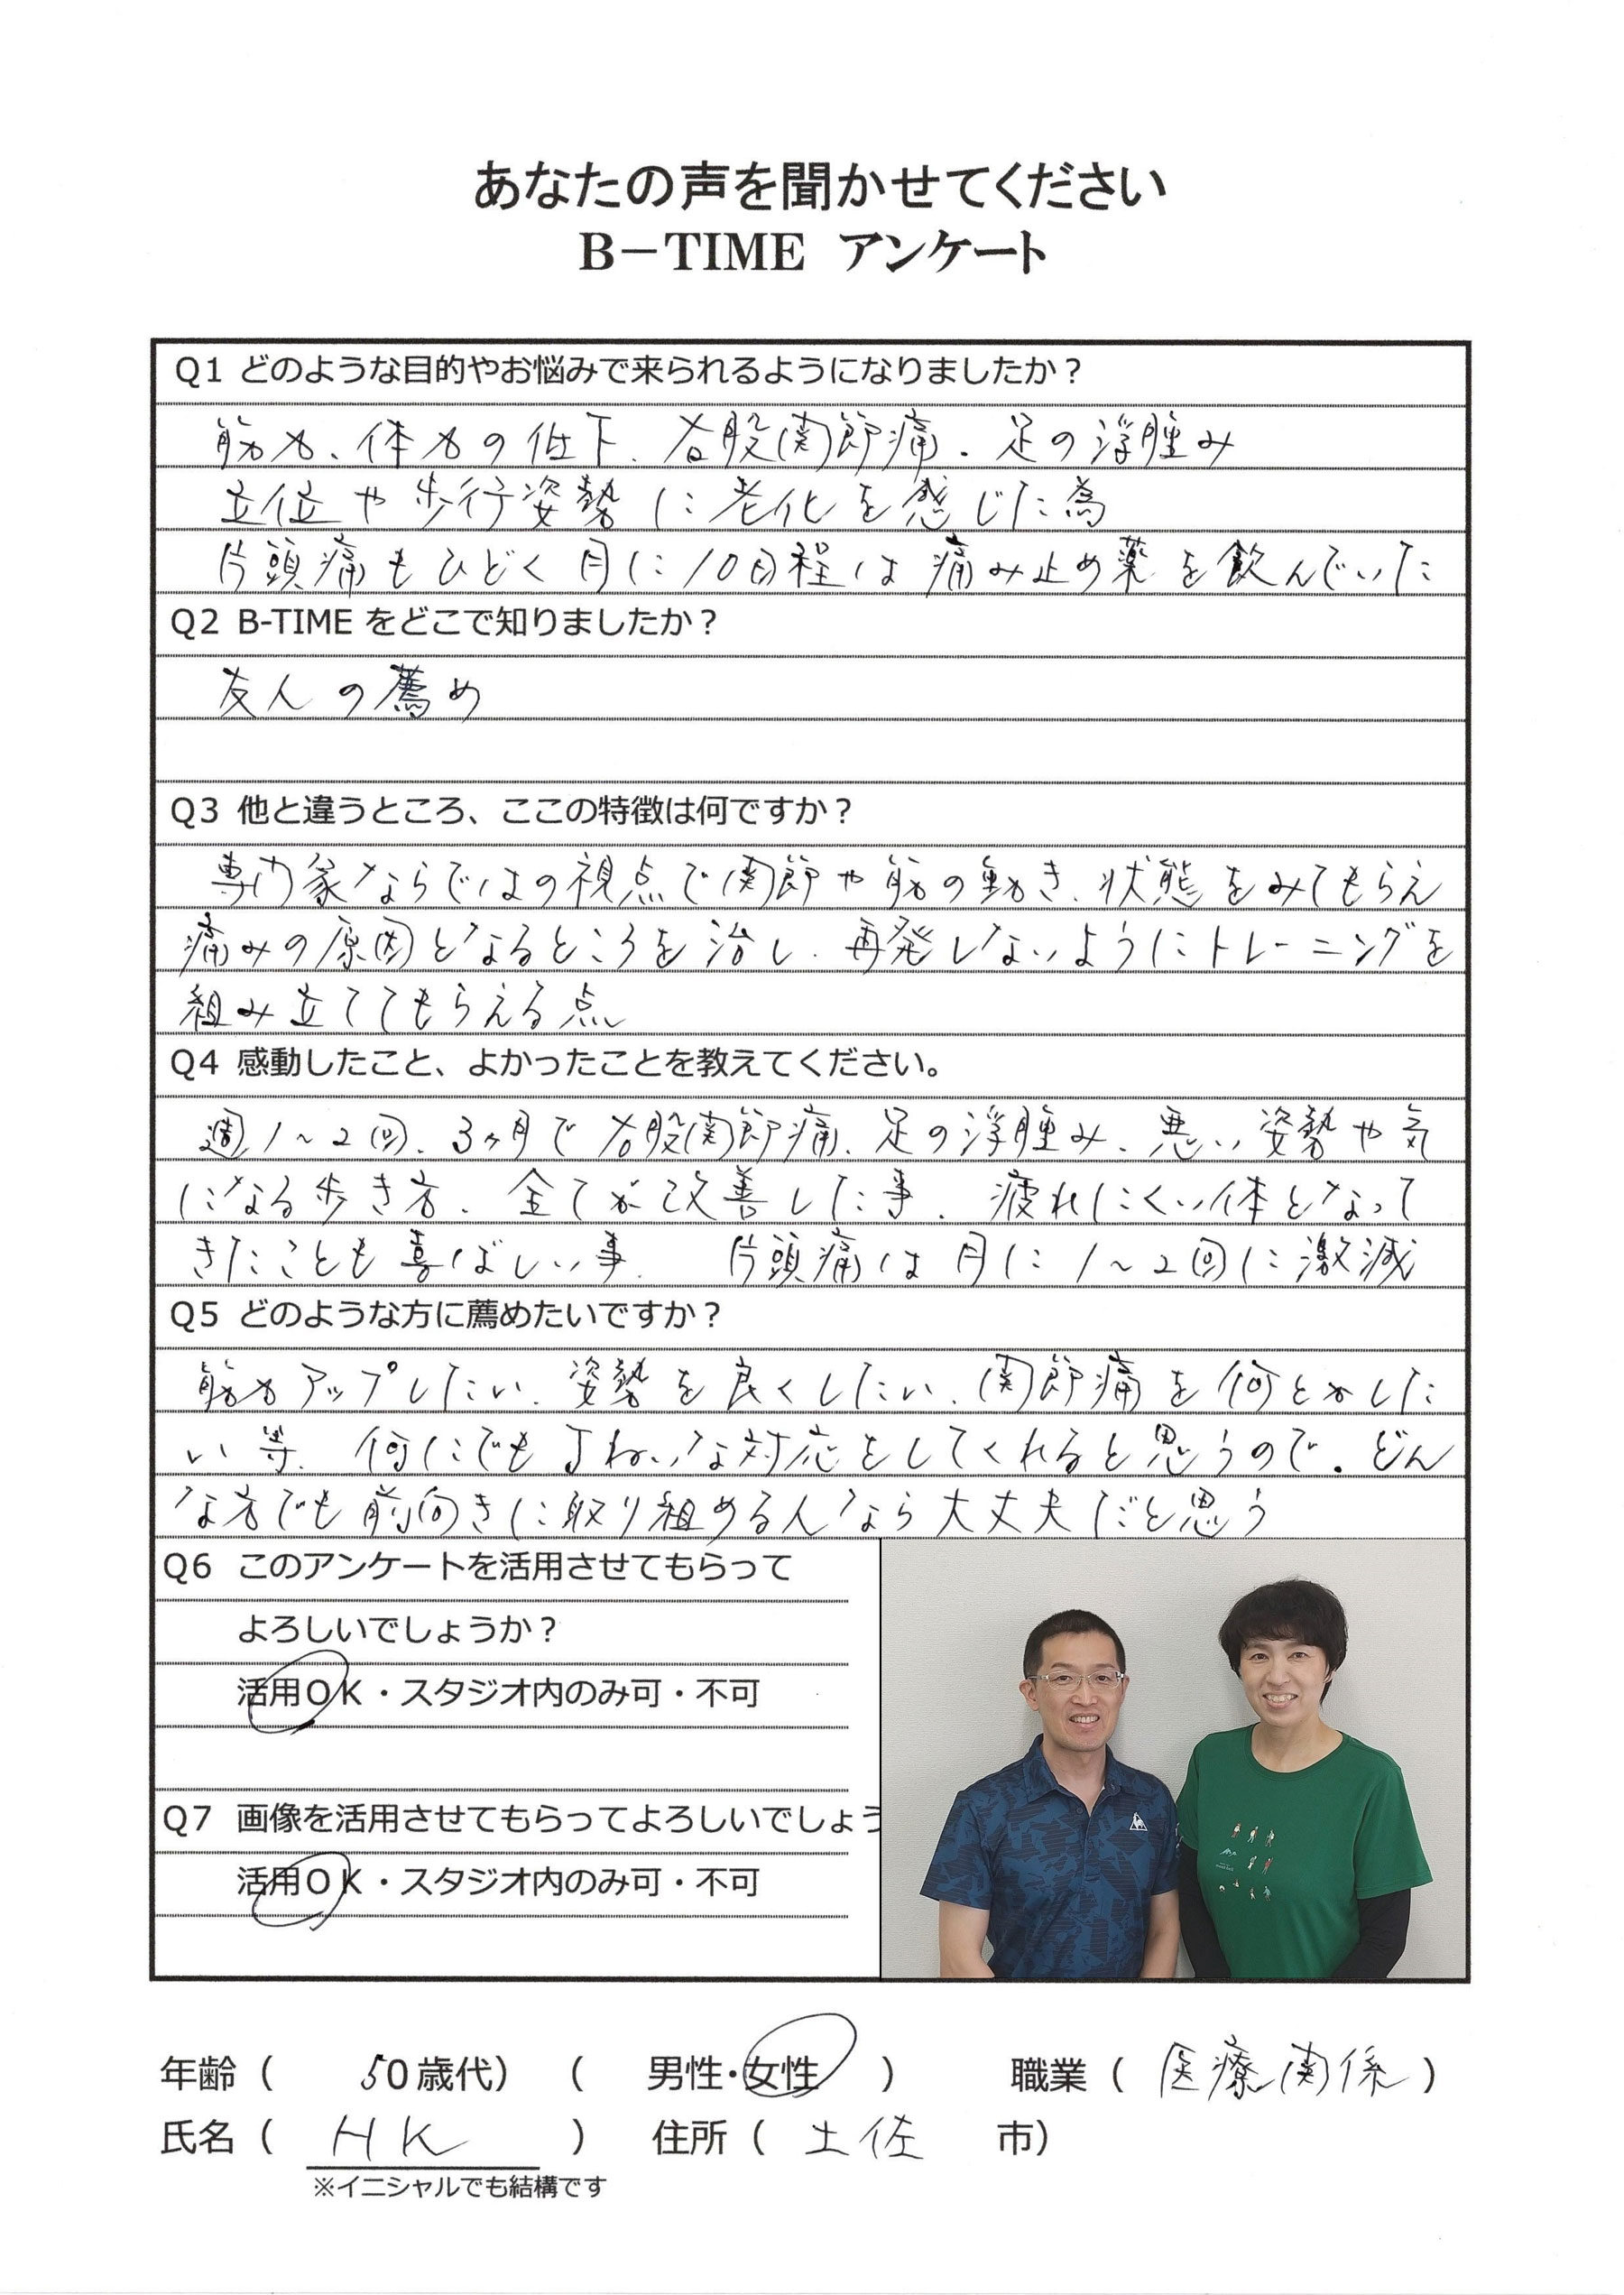 あなたの声を聞かせてください
B－TIME アンケート
Q1 どのような目的やお悩みで来られるようになりましたか？
筋力、体力の低下、右股関節痛、足の浮腫み
立位や歩行姿勢に老化を感じた為
片頭痛もひどく月に10回程は痛み止め薬を飲んでいた
Q2 B-TIME をどこで知りましたか？
友人の薦め
Q3 他と違うところ、ここの特徴は何ですか？
専門家ならではの視点で関節や筋の動き、状態をみてもらえ
痛みの原因となるところを治し、再発しないようにトレーニングを
組み立ててもらえる点
Q4 感動したこと、よかったことを教えてください。
週1～2回、3ヶ月で右股関節痛、足の浮腫み、悪い姿勢や気
になる歩き方、全てが改善した事、疲れにくい体となって
きたことも喜ばしい事、 片頭痛は月に1～2回に激減
Q5 どのような方に薦めたいですか？
筋力アップしたい、姿勢を良くしたい、関節痛を何とかした
い等、何にでも丁ねいな対応をしてくれると思うので、どん
な方でも前向きに取り組める人なら大丈夫だと思う
Q6 このアンケートを活用させてもらって
よろしいでしょうか？
活用ＯＫ・スタジオ内のみ可・不可
Q7 画像を活用させてもらってよろしいでしょう
活用ＯＫ・スタジオ内のみ可・不可
年齢（ 50歳代） （ 男性・女性 ） 職業（ 医療関係 ）
氏名（ HK ） 住所（ 土佐 市）
※イニシャルでも結構です